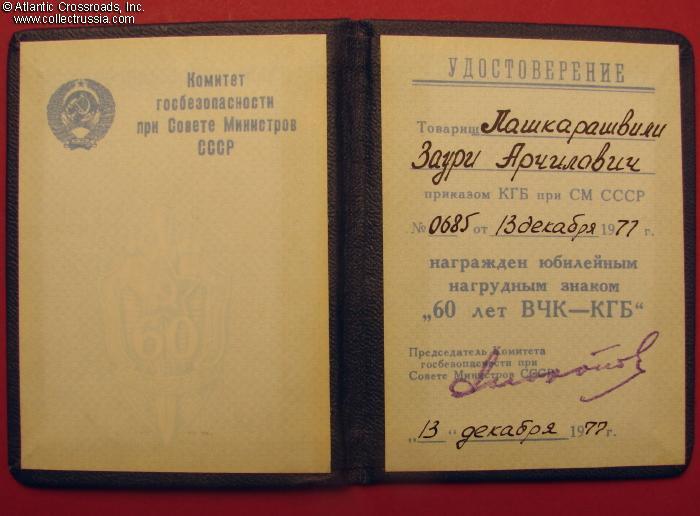 © Atlantic Crossroads, Inc.
www.collectrussia.com
Комитет
госбезопасности
при Совете Министров
СССР
60
УДОСТОВЕРЕНИЕ
Товарищ Лашкарашвили
Заури Арчилавич
приказом КГБ при СМ СССР
№ 0685 от 13 декабря 1977 г.
награжден юбилейным
нагрудным знаком
„60 лет ВЧК—КГБ“
Председатель Комитета
госбезопасности при
Совете Министров СССР
„13“ декабря 1977 г.